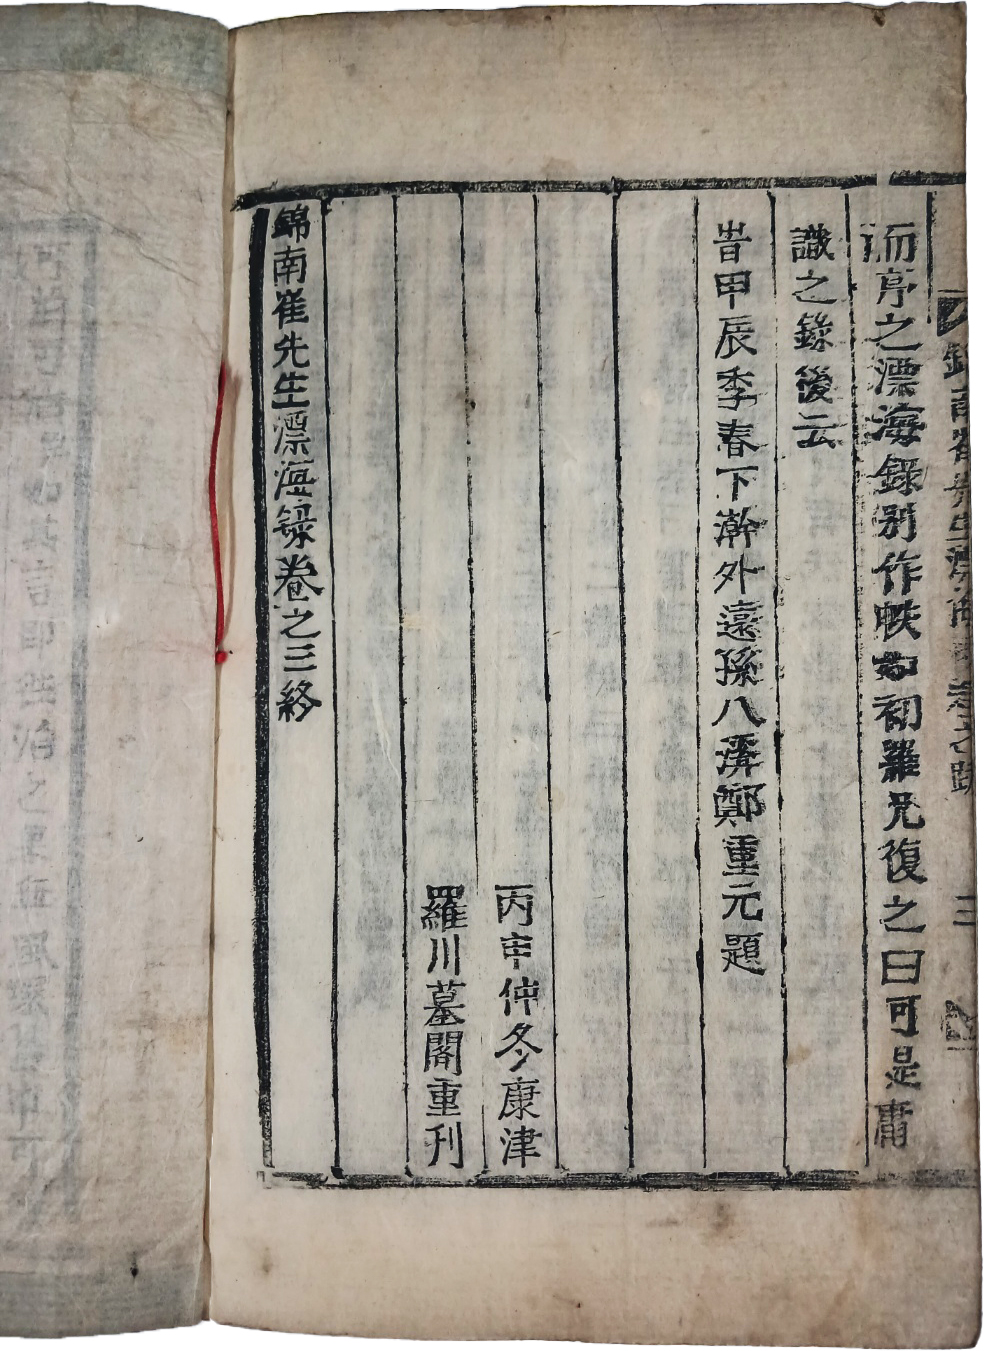 錦南崔先生漂海錄卷之跋 三
而序之漂海錄別作帙如初羅兄復之曰可是庸
識之錄後云
旹甲辰季春下澣外遠孫八溪鄭重元題
丙申仲冬康津
羅川墓閣重刊
錦南崔先生漂海錄卷之三終